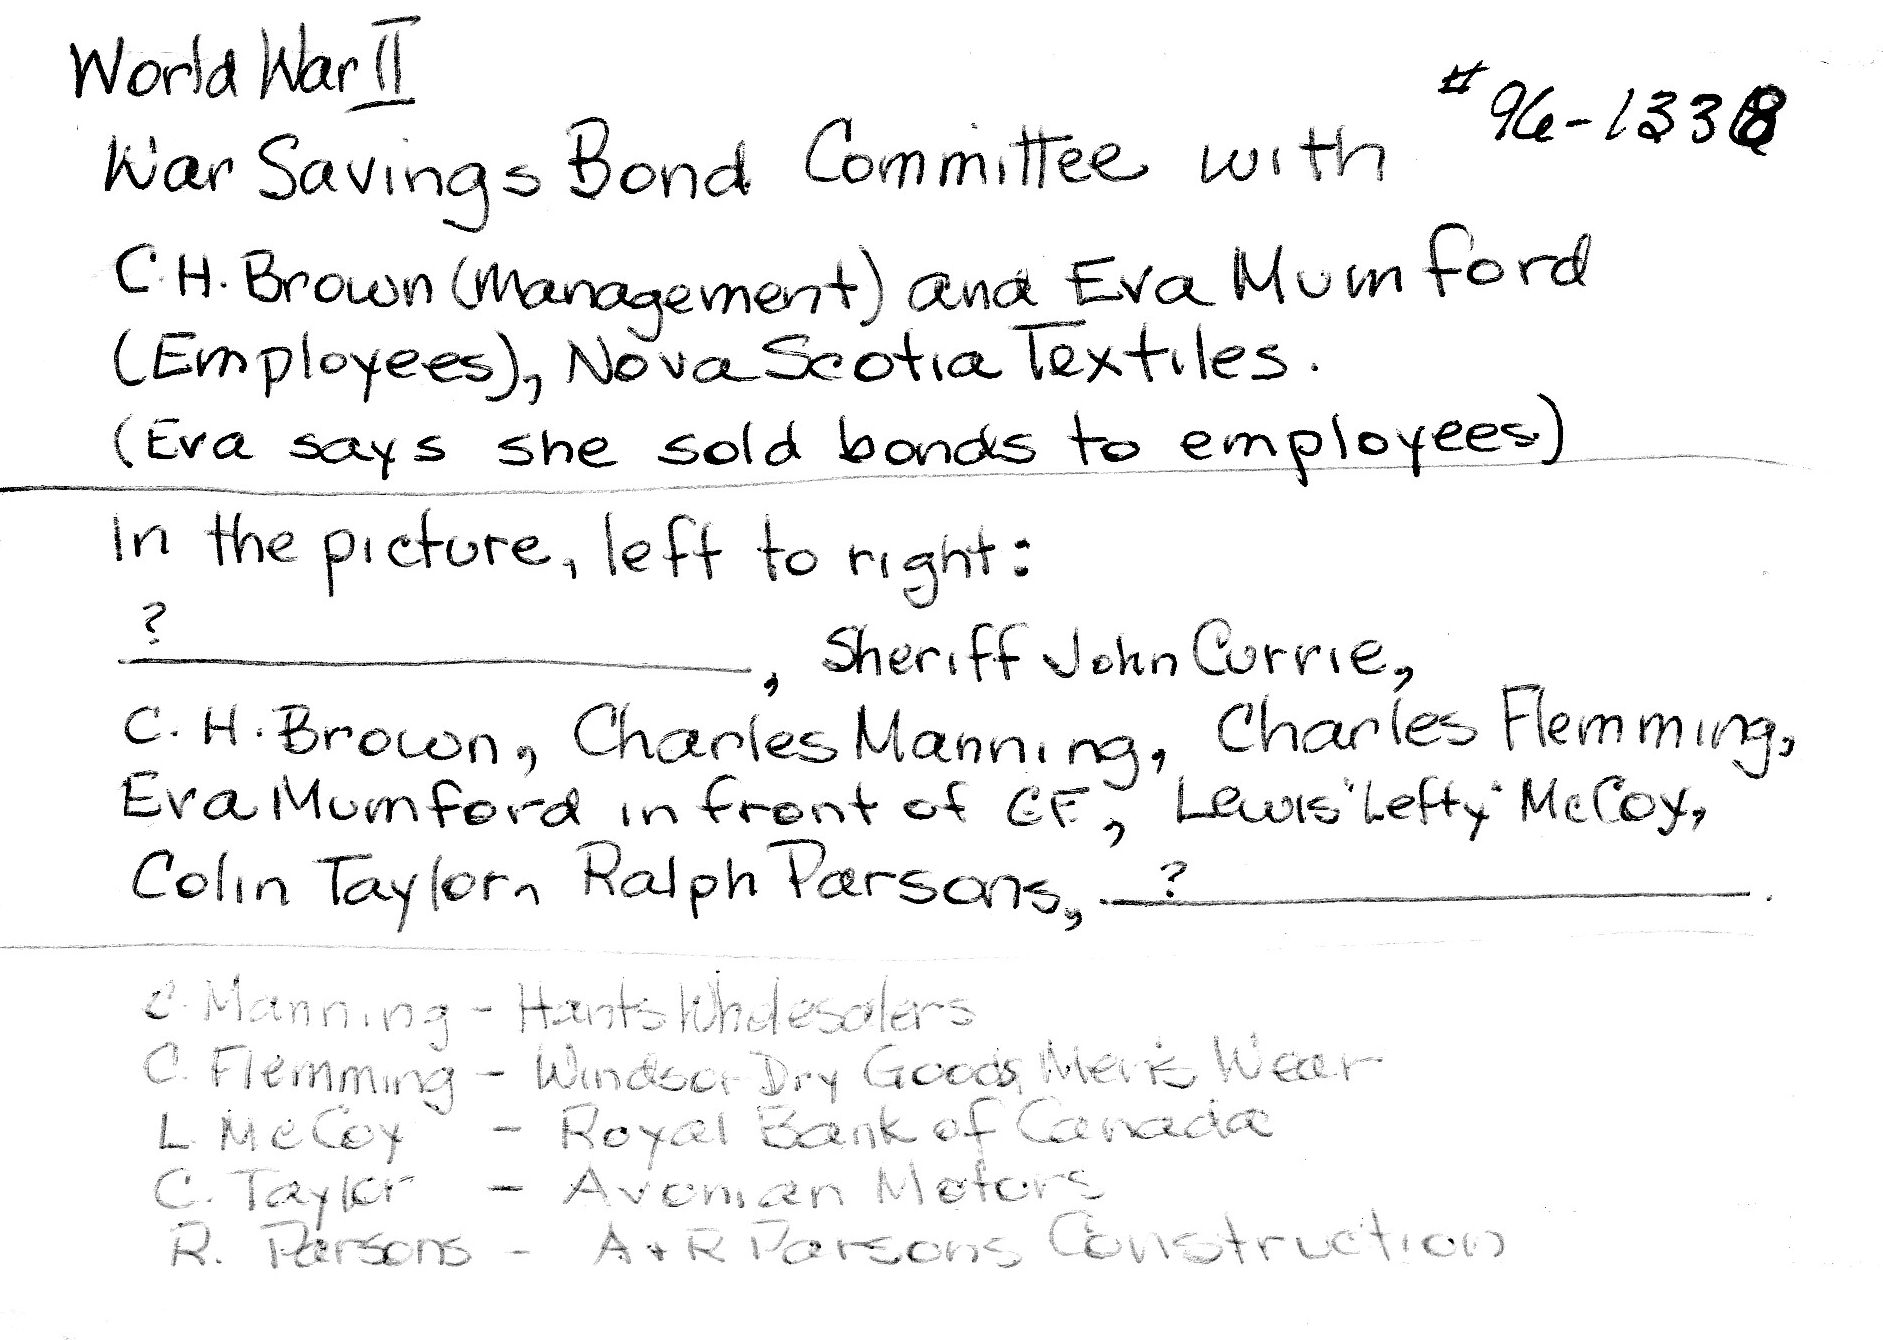 World War II
# 96-1338
War Savings Bond Committee with
C.H. Brown (Management) and Eva Mumford
(Employees), Nova Scotia Textiles.
(Eva says she sold bonds to employees)
In the picture, left to right:
? , Sheriff John Currie,
C. H. Brown, Charles Manning, Charles Flemming,
Eva Mumford in front of CF, Lewis "Lefty" McCoy,
Colin Taylor, Ralph Parsons, ? .
C. Manning - Hants Wholesalers
C. Flemming - Windsor Dry Goods, Men's Wear
L McCoy - Royal Bank of Canada
C. Taylor - Avonian Motors
R. Parsons - A + R Parsons Construction